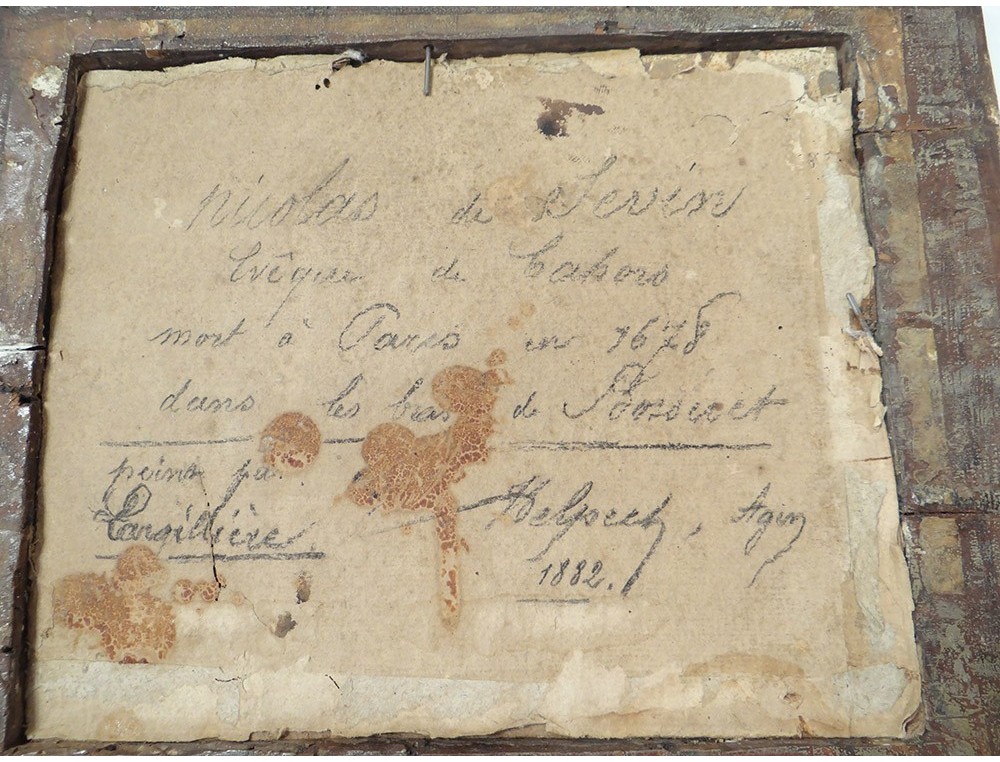 Nicolas de Sevin
Evêque de Cahors
mort à Paris en 1678
dans les bras de
peint pa
Largillière. Agen
1882.